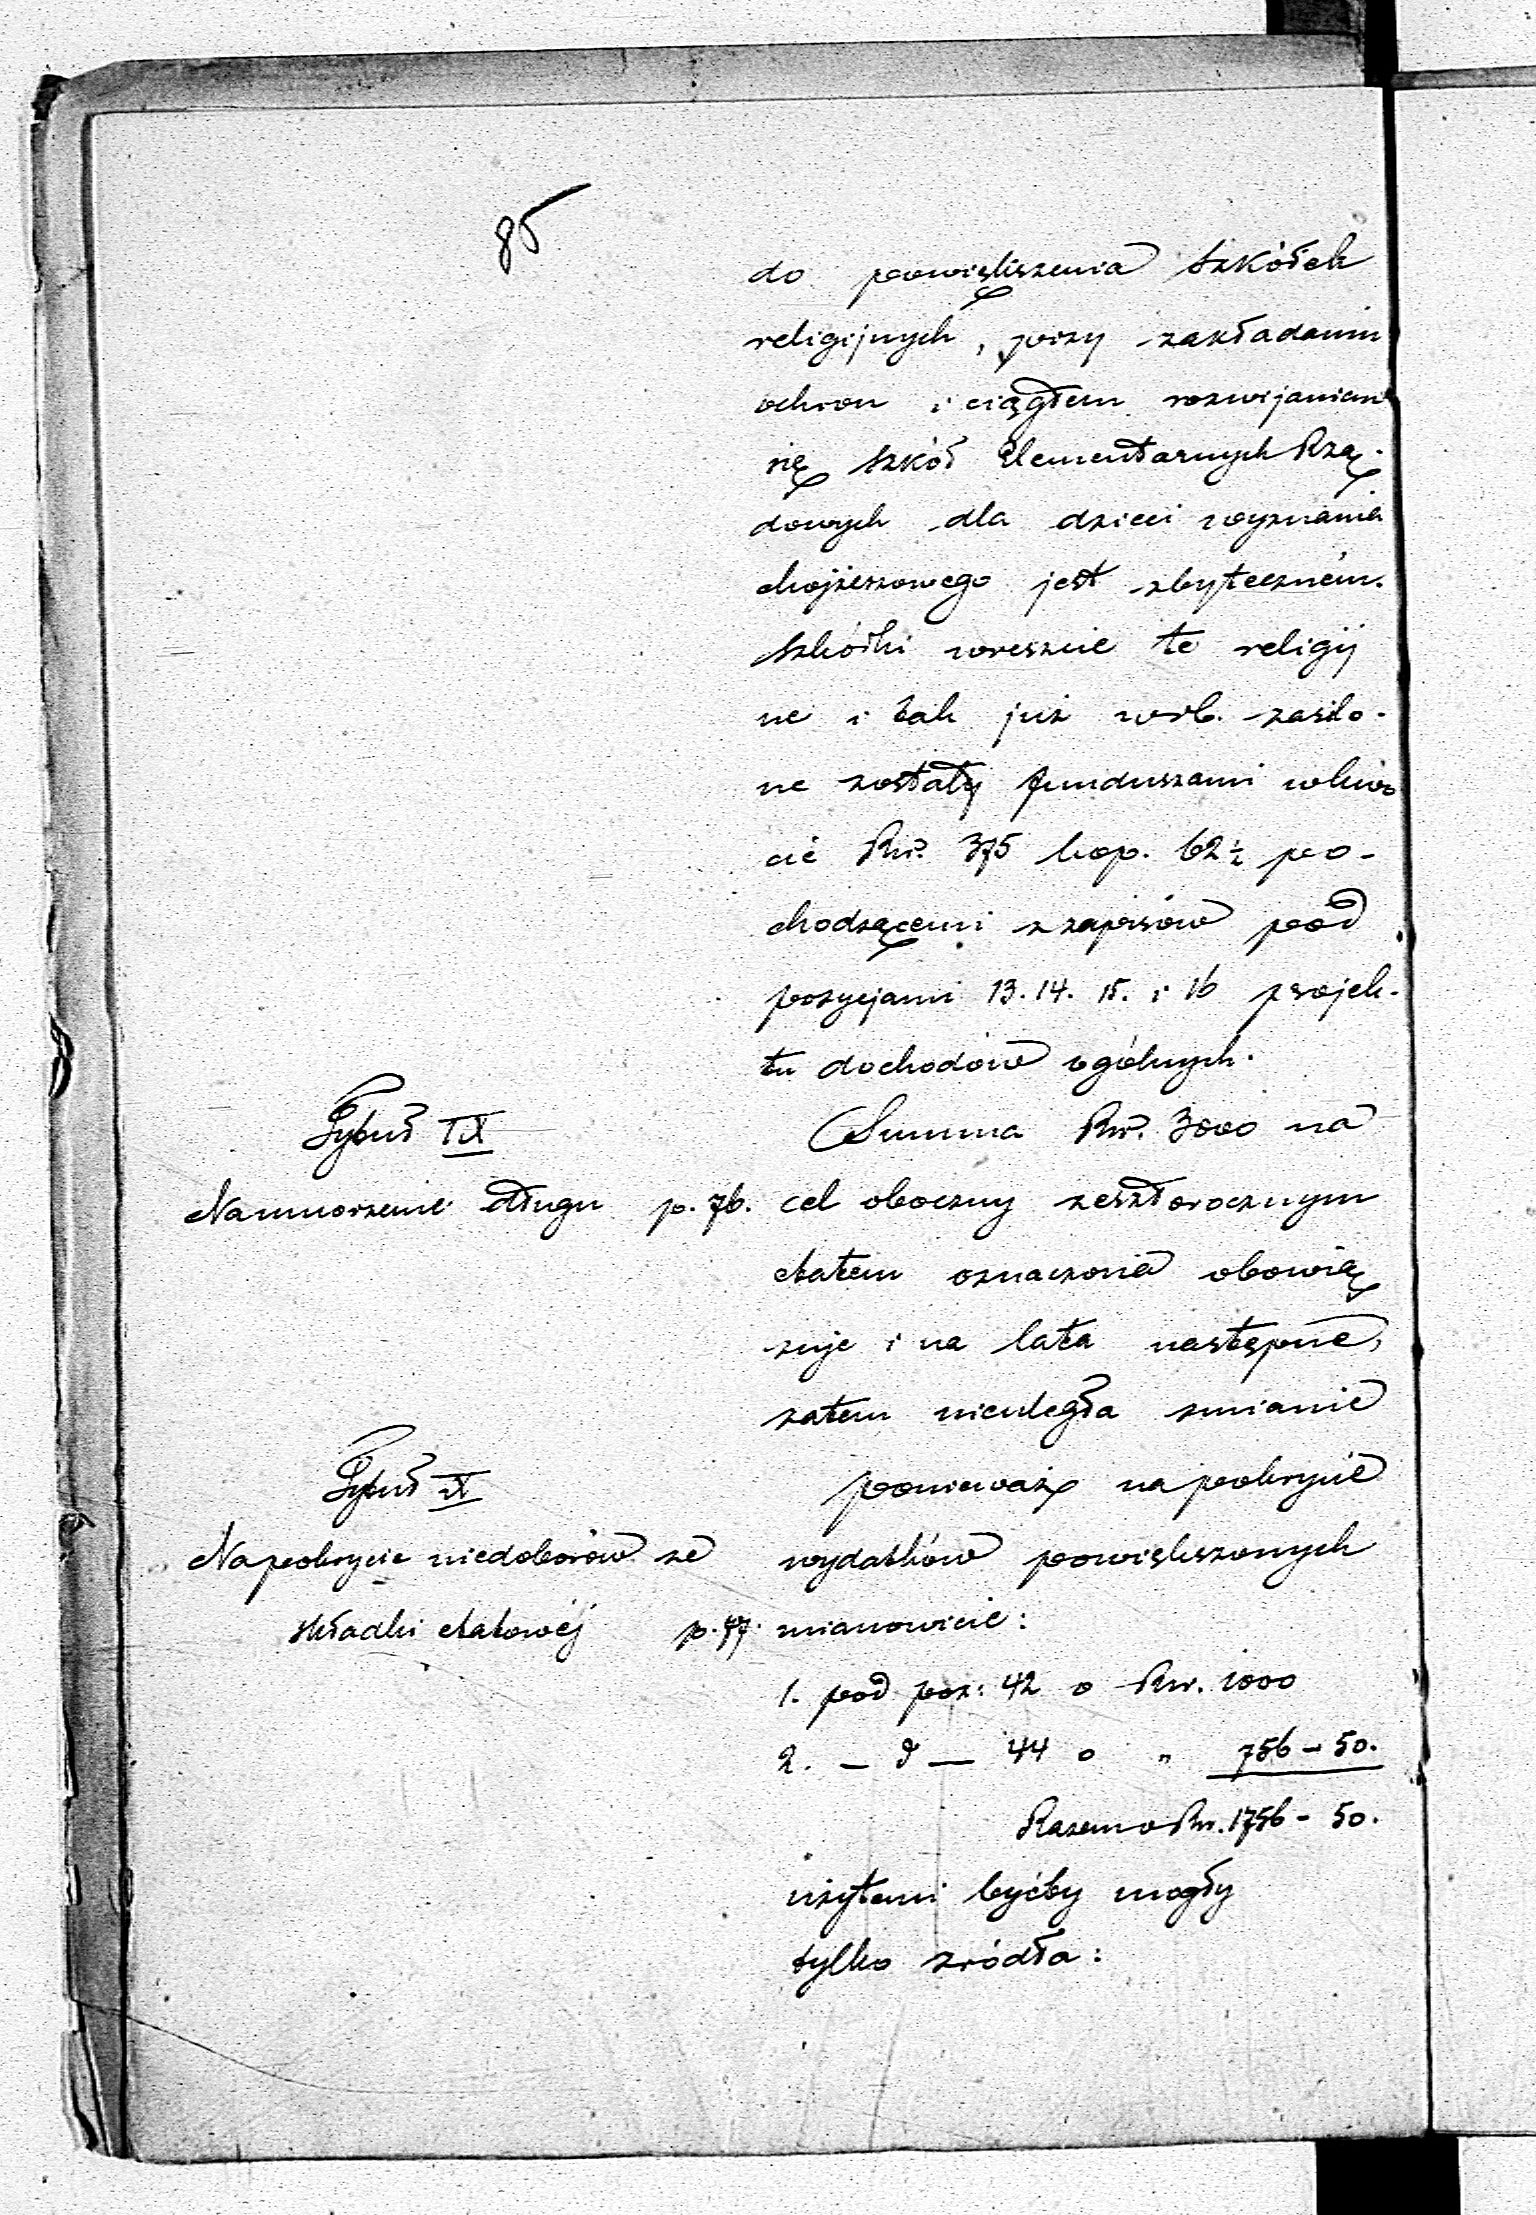 85
do powiększenia szkółek
religijnych, przy zakładaniu
ochron i ciągłem rozwijaniem
się szkół Elementarnych Rzą-
dowych dla dzieci wyznania
mojżeszowego jest zbyteczném.
Szkółki wreszcie te religij
ne i tak już wr.b. zasilo-
ne zostały funduszami wkwo
cie Rsr. 375 kop. 62½ po-
chodzącemi z zapisów pod
pozycjami 13. 14. 15. i 16 projek-
tu dochodów ogólnych.
Tytuł IX
Na umorzenie długu p. 76.
Summa Rsr. 3000 na
cel oboczny zeszłorocznym
etatem oznaczona obowią
zuje i na lata następne,
zatem nieuległa zmianie
Tytuł X
Na pokrycie niedoborów ze
składki etatowéj p. 77.
ponieważ na pokrycie
wydatków powiększonych
mianowicie:
1. pod poz: 42 o Rsr. 1000
2. — d — 44 o " 756 - 50.
Razem o Rsr. 1756 - 50.
użytemi byćby mogły
tylko źródła: